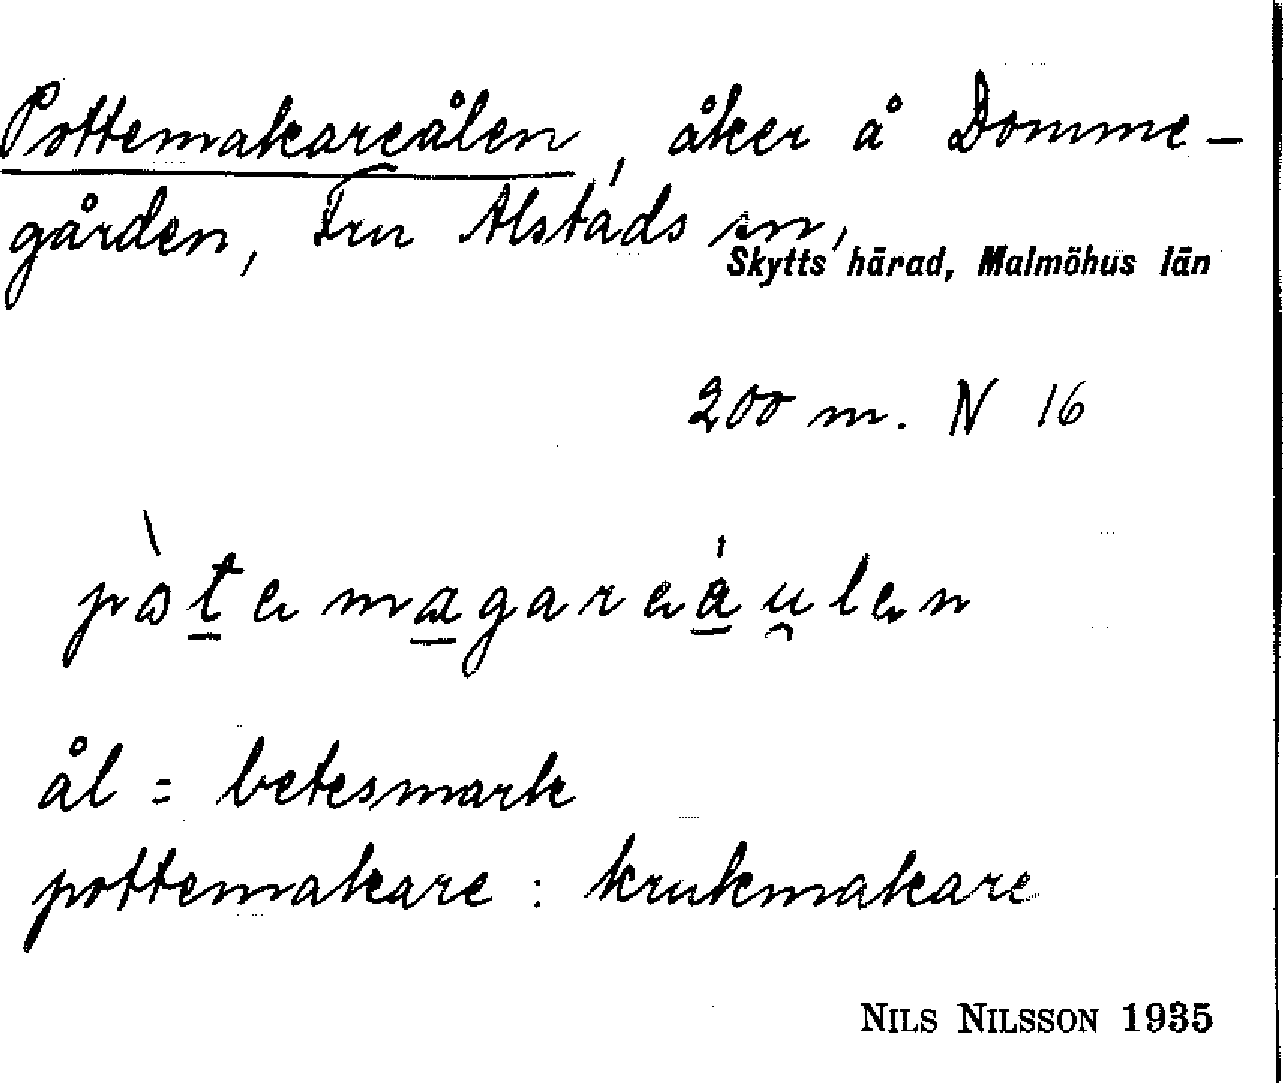 Pottemakareålen, åker å Domme-
gården, Fru Alstads sn,
Skytts härad, Malmöhus län
200 m. N 16
pòtemagareáu̯len
ål = betesmark
pottemakare : krukmakare
NILS NILSSON 1935